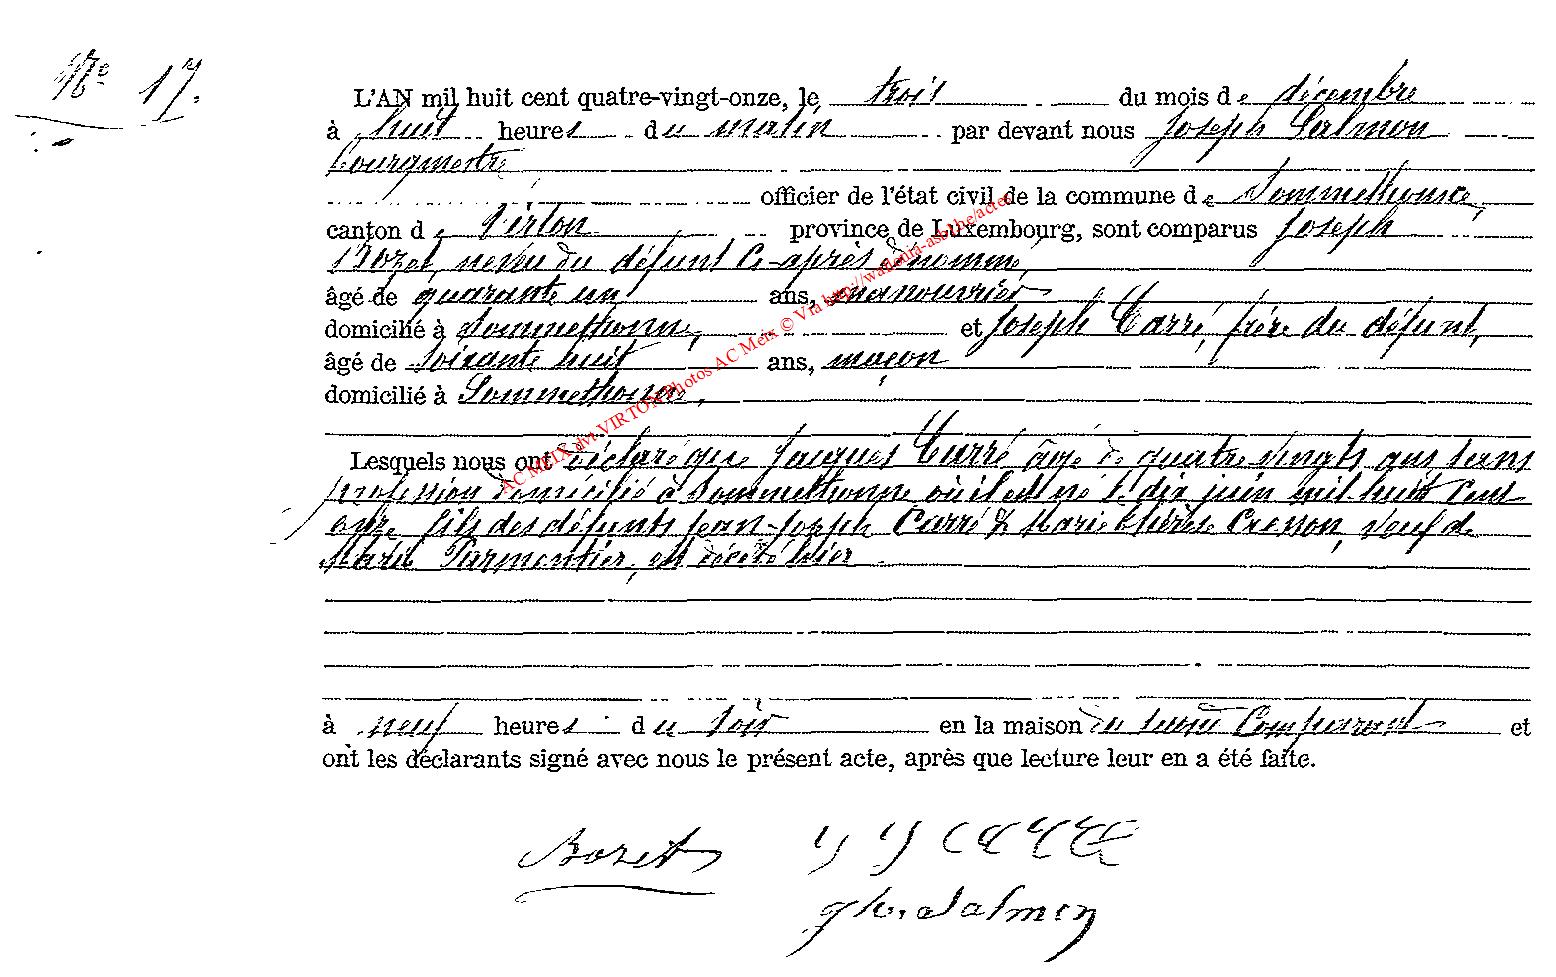 No 17.
L'AN mil huit cent quatre-vingt-onze, le trois du mois de décembre
à huit heures du matin par devant nous Joseph Salmon
bourgmestre
officier de l'état civil de la commune de Sommethonne,
canton de Virton province de Luxembourg, sont comparus Joseph
Bozet, neveu du défunt ci-après dénommé,
âgé de quarante un ans, manouvrier
domicilié à Sommethonne, et Joseph Carré, frère du défunt,
âgé de soixante huit ans, maçon
domicilié à Sommethonne,
Lesquels nous ont déclaré que Jacques Carré âgé de quatre vingts ans sans
profession domicilié à Sommethonne où il est né le dix juin mil huit cent
onze fils des défunts Jean-Joseph Carré & Marie Thérèse Crenson, veuf de
Marie Parmentier, est décédé hier
à neuf heures du soir en la maison du second comparant et
ont les déclarants signé avec nous le présent acte, après que lecture leur en a été faite.
Bozet J J Carré
Jh. Salmon
AC MEIX dvt VIRTON Photos AC Meix © Via http://wallonia-asbl.be/actes